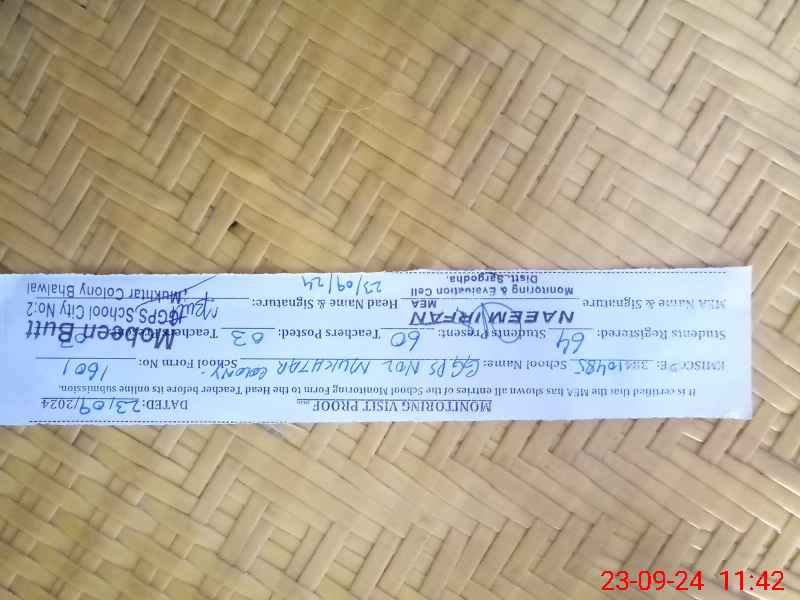 MONITORING VISIT PROOF DATED: 23/09/2024
It is certified that the MEA has shown all entries of the School Monitoring Form to the Head Teacher before its online submission.
School Name: GGPS NO2 MUKHTAR COLONY. School Form No: 1601
Students Registered: 64 Students Present: 60 Teachers Posted: 03 Teachers
MEA Name & Signature Head Name & Signature:
NAEEM IRFAN
MEA
Monitoring & Evaluation Cell
Distt. Sargodha.
23/09/24
Mobeen Butt
GGPS.School City No:2
Mukhtar Colony Bhalwal
23-09-24 11:42